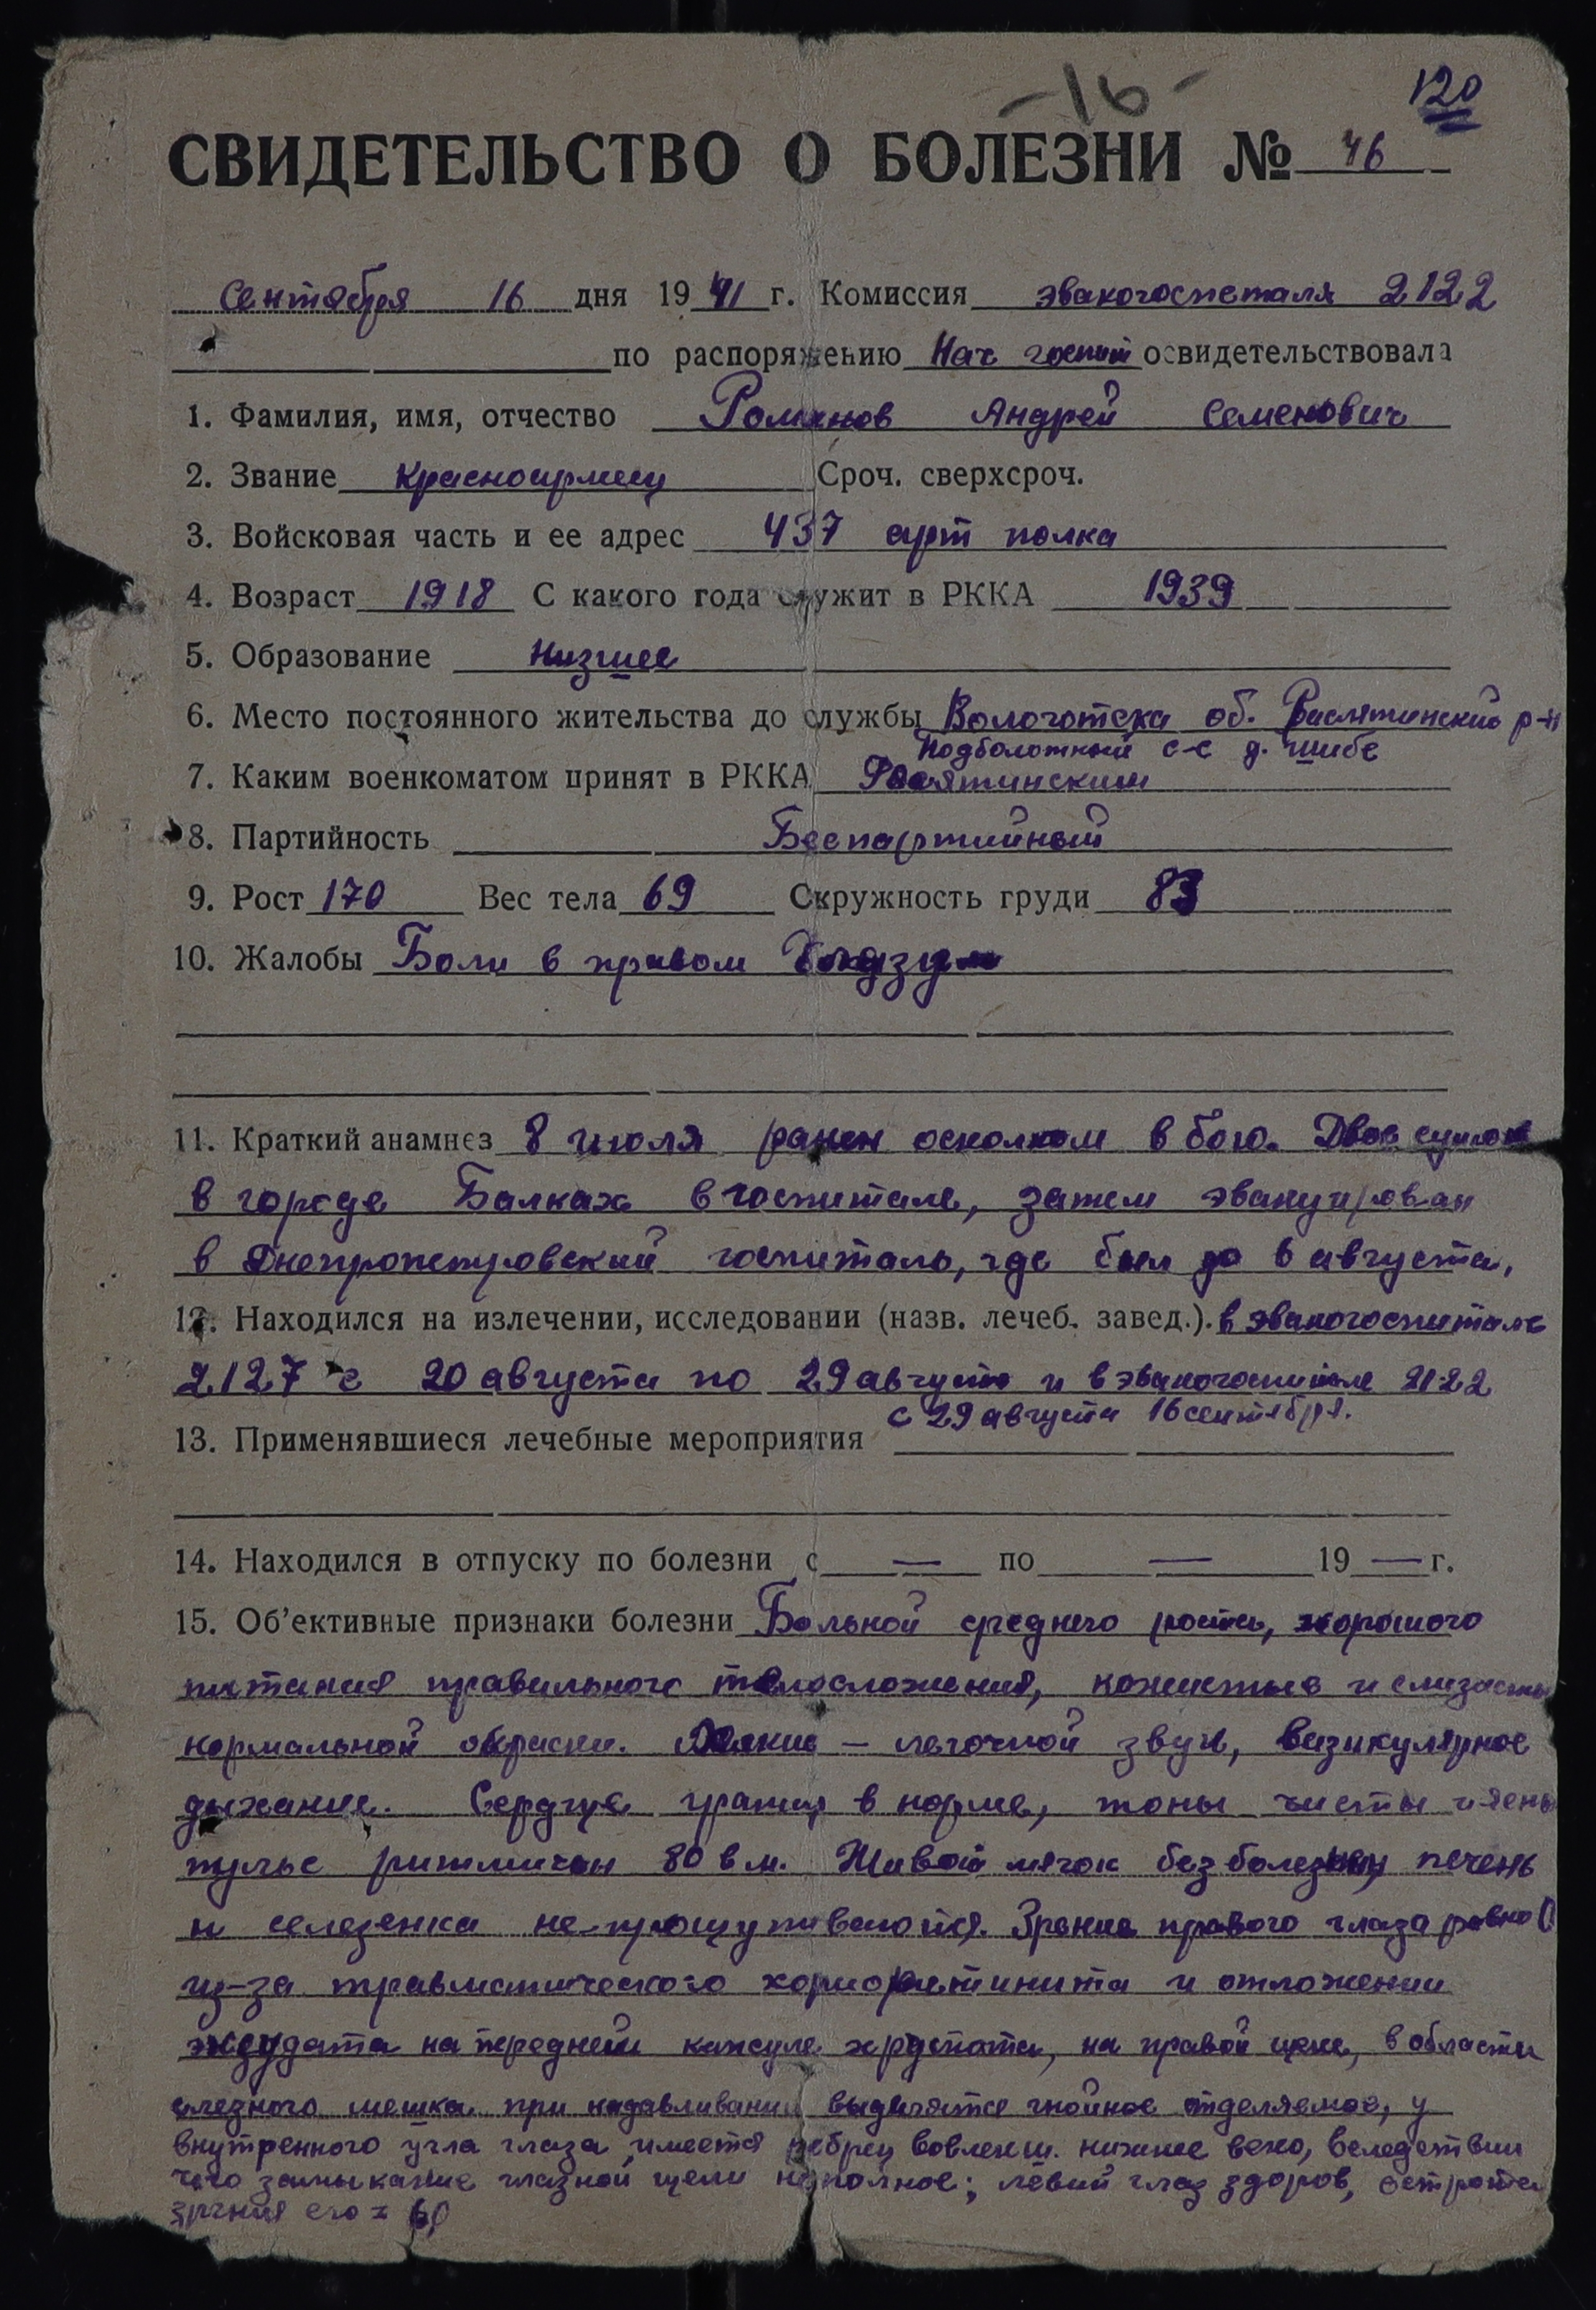 -16-
120
СВИДЕТЕЛЬСТВО О БОЛЕЗНИ № 46
Сентября 16 дня 1941 г. Комиссия эвакогоспеталя 2122
по распоряжению Нач госпит освидетельствовала
1. Фамилия, имя, отчество Романов Андрей Семенович
2. Звание Красноармеец Сроч. сверхсроч.
3. Войсковая часть и ее адрес 437 арт полка
4. Возраст 1918 С какого года служит в РККА 1939
5. Образование Низшее
6. Место постоянного жительства до службы Вологотска об. р-н
Подболотный с-с д.
7. Каким военкоматом принят в РККА
8. Партийность Беспартийный
9. Рост 170 Вес тела 69 Окружность груди 83
10. Жалобы Боли в правом
11. Краткий анамнез 8 июля ранен осколком в бою. Двое суток
в городе Балках в госпитале, затем эвакуирован
в Днепропетровский госпиталь, где был до 6 августа,
12. Находился на излечении, исследовании (назв. лечеб. завед.). в эвакогоспитале
2127 с 20 августа по 29 августа и в эвакогоспитале 2122
с 29 августа 16 сентября.
13. Применявшиеся лечебные мероприятия
14. Находился в отпуску по болезни с — по — 19 — г.
15. Об'ективные признаки болезни Больной среднего роста, хорошего
питания правильного телосложения, и слизистые
нормальной окраски. Легкие — легочной звук, везикулярное
дыхание. Сердце границ в норме, тоны чисты
пульс ритмичен 80 в м. Живот мягок безболезнен, печень
и селезенка не-прощупиваюйся. Зрение правого глаза равно 0
из-за травматического хориоретинита и отложении
эксудата на передней капсуле хрусталика, на правой щеке, в области
слезного мешка при надавливании выделяется гнойное отделяемое, у
внутренного угла глаза, имеется рубец вовлекш. нижнее веко, вследствии
чего замыкание глазной щели неполное; левый глаз здоров, острота
зрения его =